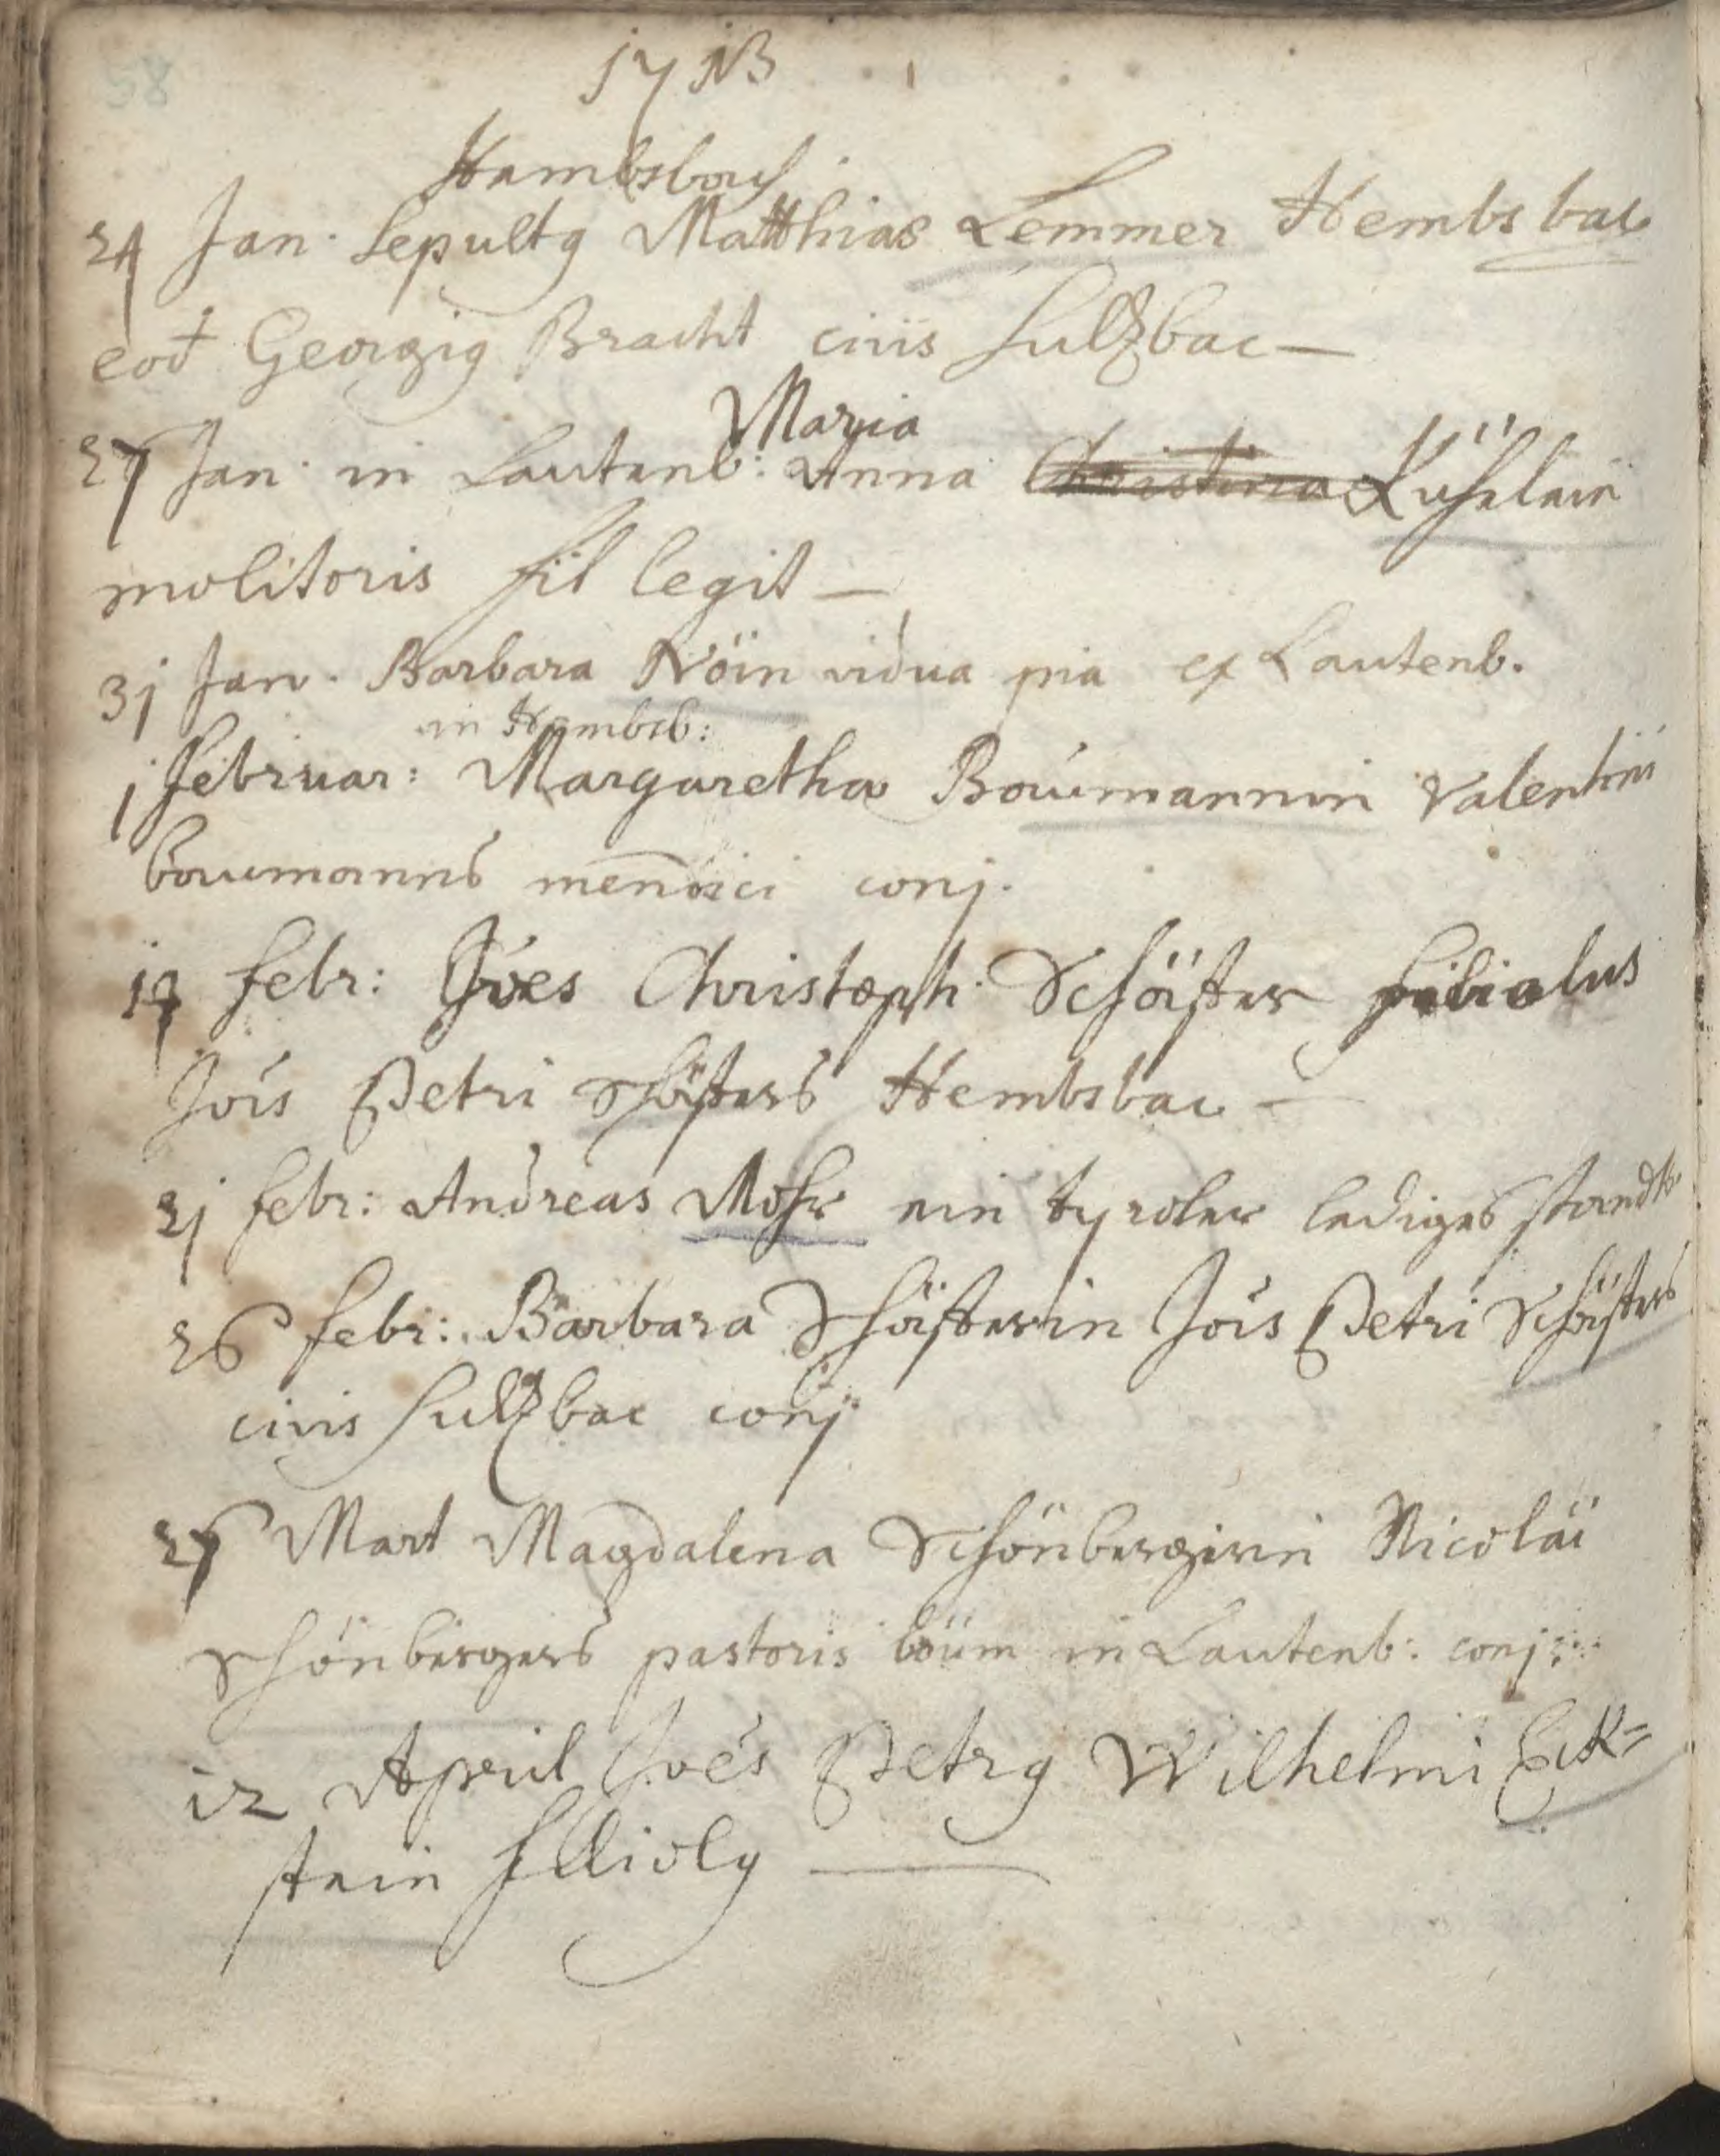 58
1713
Hembsbach
24 Jan. Sepultq Matthias Lemmer Hembsbac
eod Georgiq Bracht civis Sultzbac —
Maria
27 Jan. in Lautenb: Anna Christina Kühelein
molitoris fil legit —
31 Jan. Barbara Nöin vidua pia ex Lautenb.
in Hembsb:
1 Februar: Margaretha Baumannin Valentini
baumanns mendici conj.
14 febr: Joes Christoph Schäffer filiolus
Jois Petri Schäffers Hembsbac —
21 febr: Andreas Mohr ein tyroler lediges standts
26 febr: Barbara Schäfferin Jois Petri Schäffers
civis Sultzbac conj
27 Mart Magdalena Schönbergerin Nicolai
Schönbergers pastoris boum in Lautenb: conj:
12 April Joes Petrq Wilhelmi Eck=
stein filiolq —